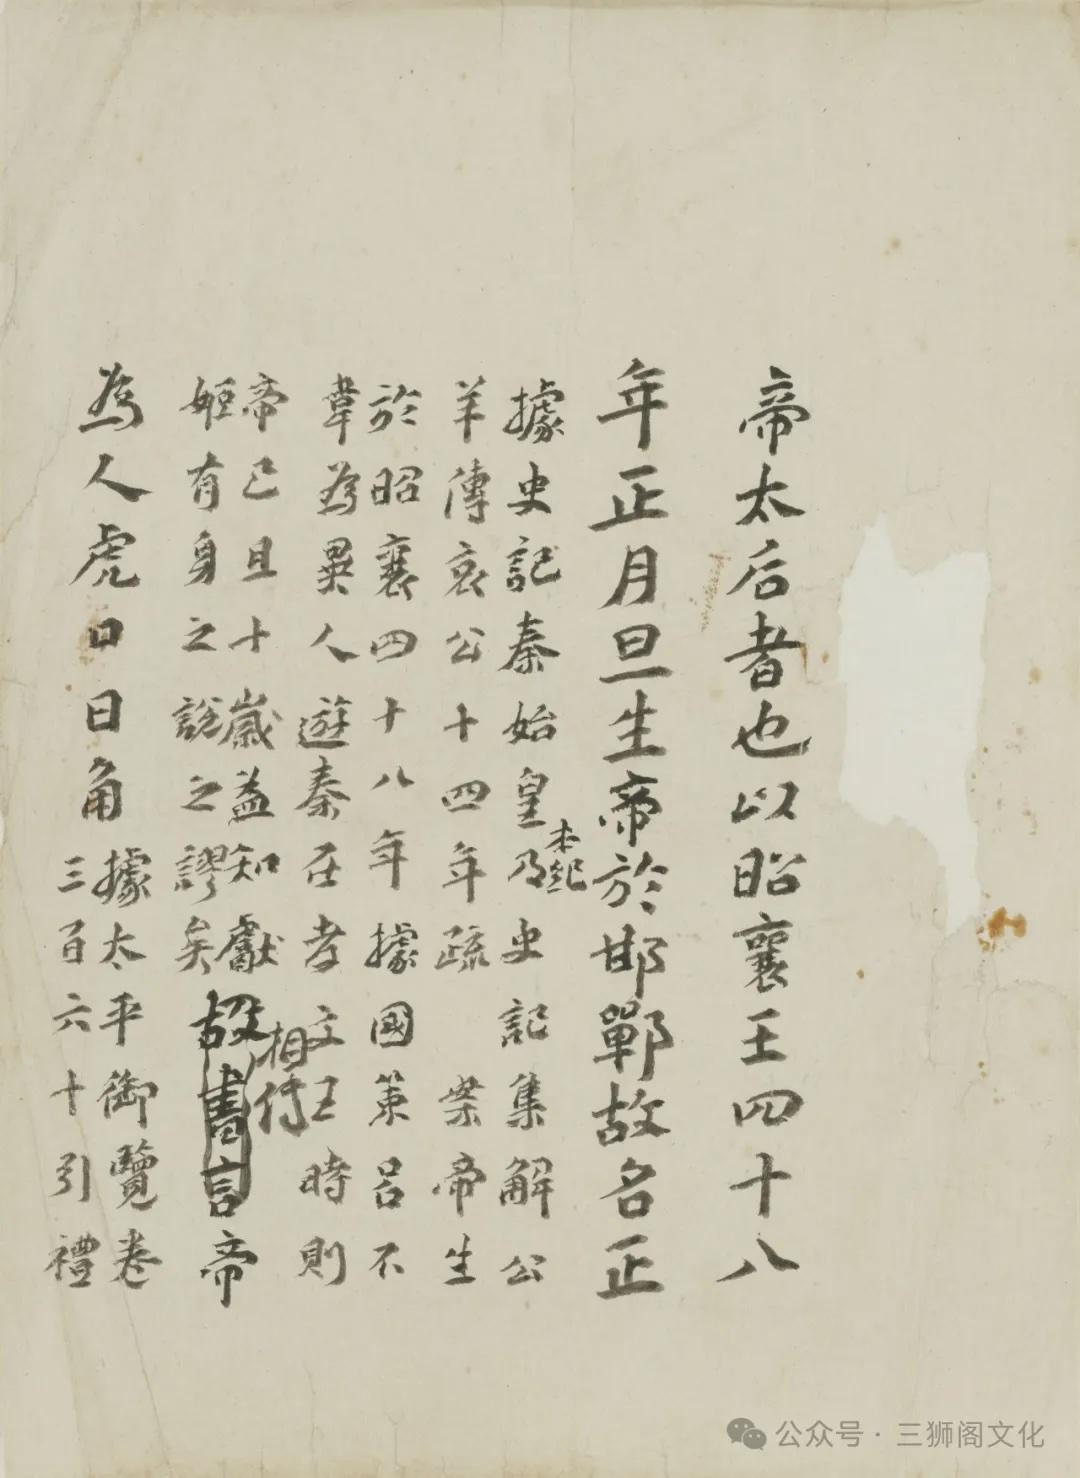 帝太后者也以昭襄王四十八
年正月旦生帝於邯鄲故名正
據史記秦始皇本紀及史記集解公
羊傳哀公十四年疏 案帝生
於昭襄四十八年據國策呂不
韋為異人遊秦在孝文王時則
帝已且十歲益知獻
姬有身之說之謬矣
故書言相傳帝
為人虎口日角
據太平御覽卷
三百六十引禮
公众号·三狮阁文化